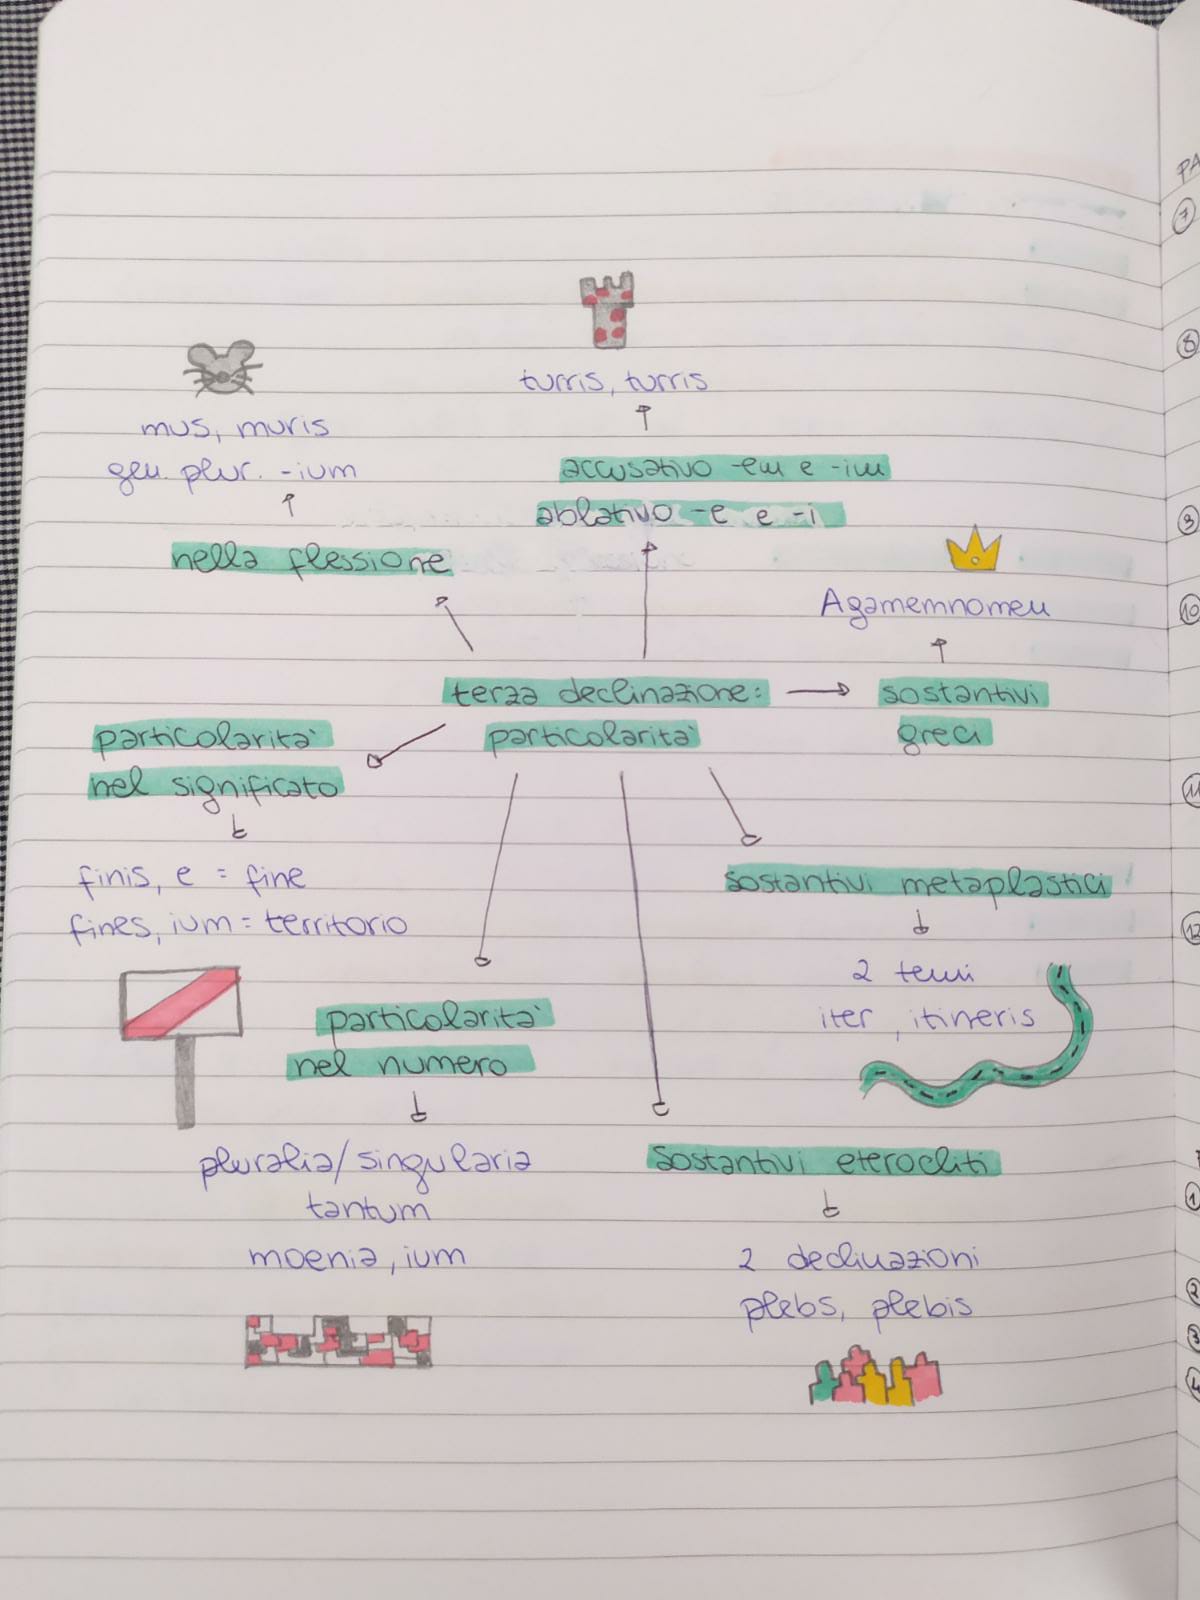 turris, turris
mus, muris
gen. plur. -ium
accusativo -em e -im
ablativo -e e -i
nella flessione
Agamemnomem
terza declinazione:
particolarità
sostantivi
greci
particolarità
nel significato
finis, e = fine
fines, ium = territorio
sostantivi metaplastici
2 temi
iter, itineris
particolarità
nel numero
pluralia/singularia
tantum
moenia, ium
sostantivi eterocliti
2 declinazioni
plebs, plebis
PA
7
8
9
10
11
12
1
2
3
4